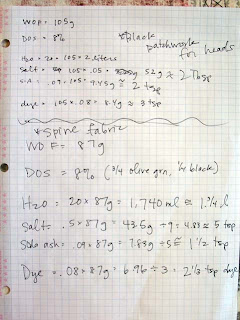 WOF = 105g
DOS = 8%
*black patchwork for heads
H2o = 20 × 105 = 2 liters
Salt = 105 × .05 52g ≈ 2 Tbsp
S.A. = .09 × 105 = 9.45g ≈ 2 tsp
dye = 105 × .08 = 8.4g ≈ 3 tsp
*spine fabric
WOF = 87g
DOS = 8% (3/4 olive grn, 1/4 black)
H2O = 20 × 87g = 1,740 ml ≅ 1 3/4 l
Salt = .5 × 87g = 43.5g ÷ 9 = 4.83 ≅ 5 tsp
Soda ash = .09 × 87g = 7.83g ÷ 5 ≅ 1 1/2 tsp
Dye = .08 × 87g = 6.96 ÷ 3 = 2 1/3 tsp dye